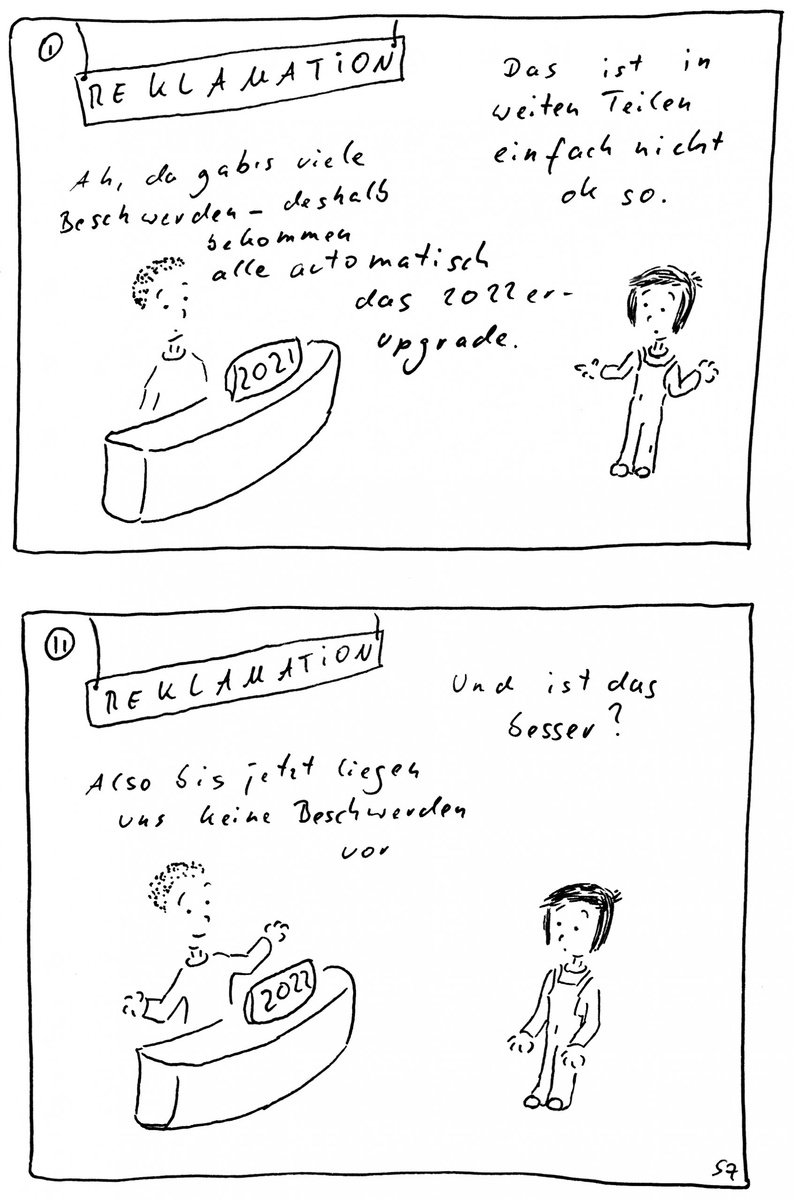 I
REKLAMATION
Das ist in
weiten Teilen
einfach nicht
ok so.
Ah, da gab's viele
Beschwerden - deshalb
bekommen
alle automatisch
das 2022er-
upgrade.
2021
II
REKLAMATION
Und ist das
besser?
Also bis jetzt liegen
uns keine Beschwerden
vor
2022